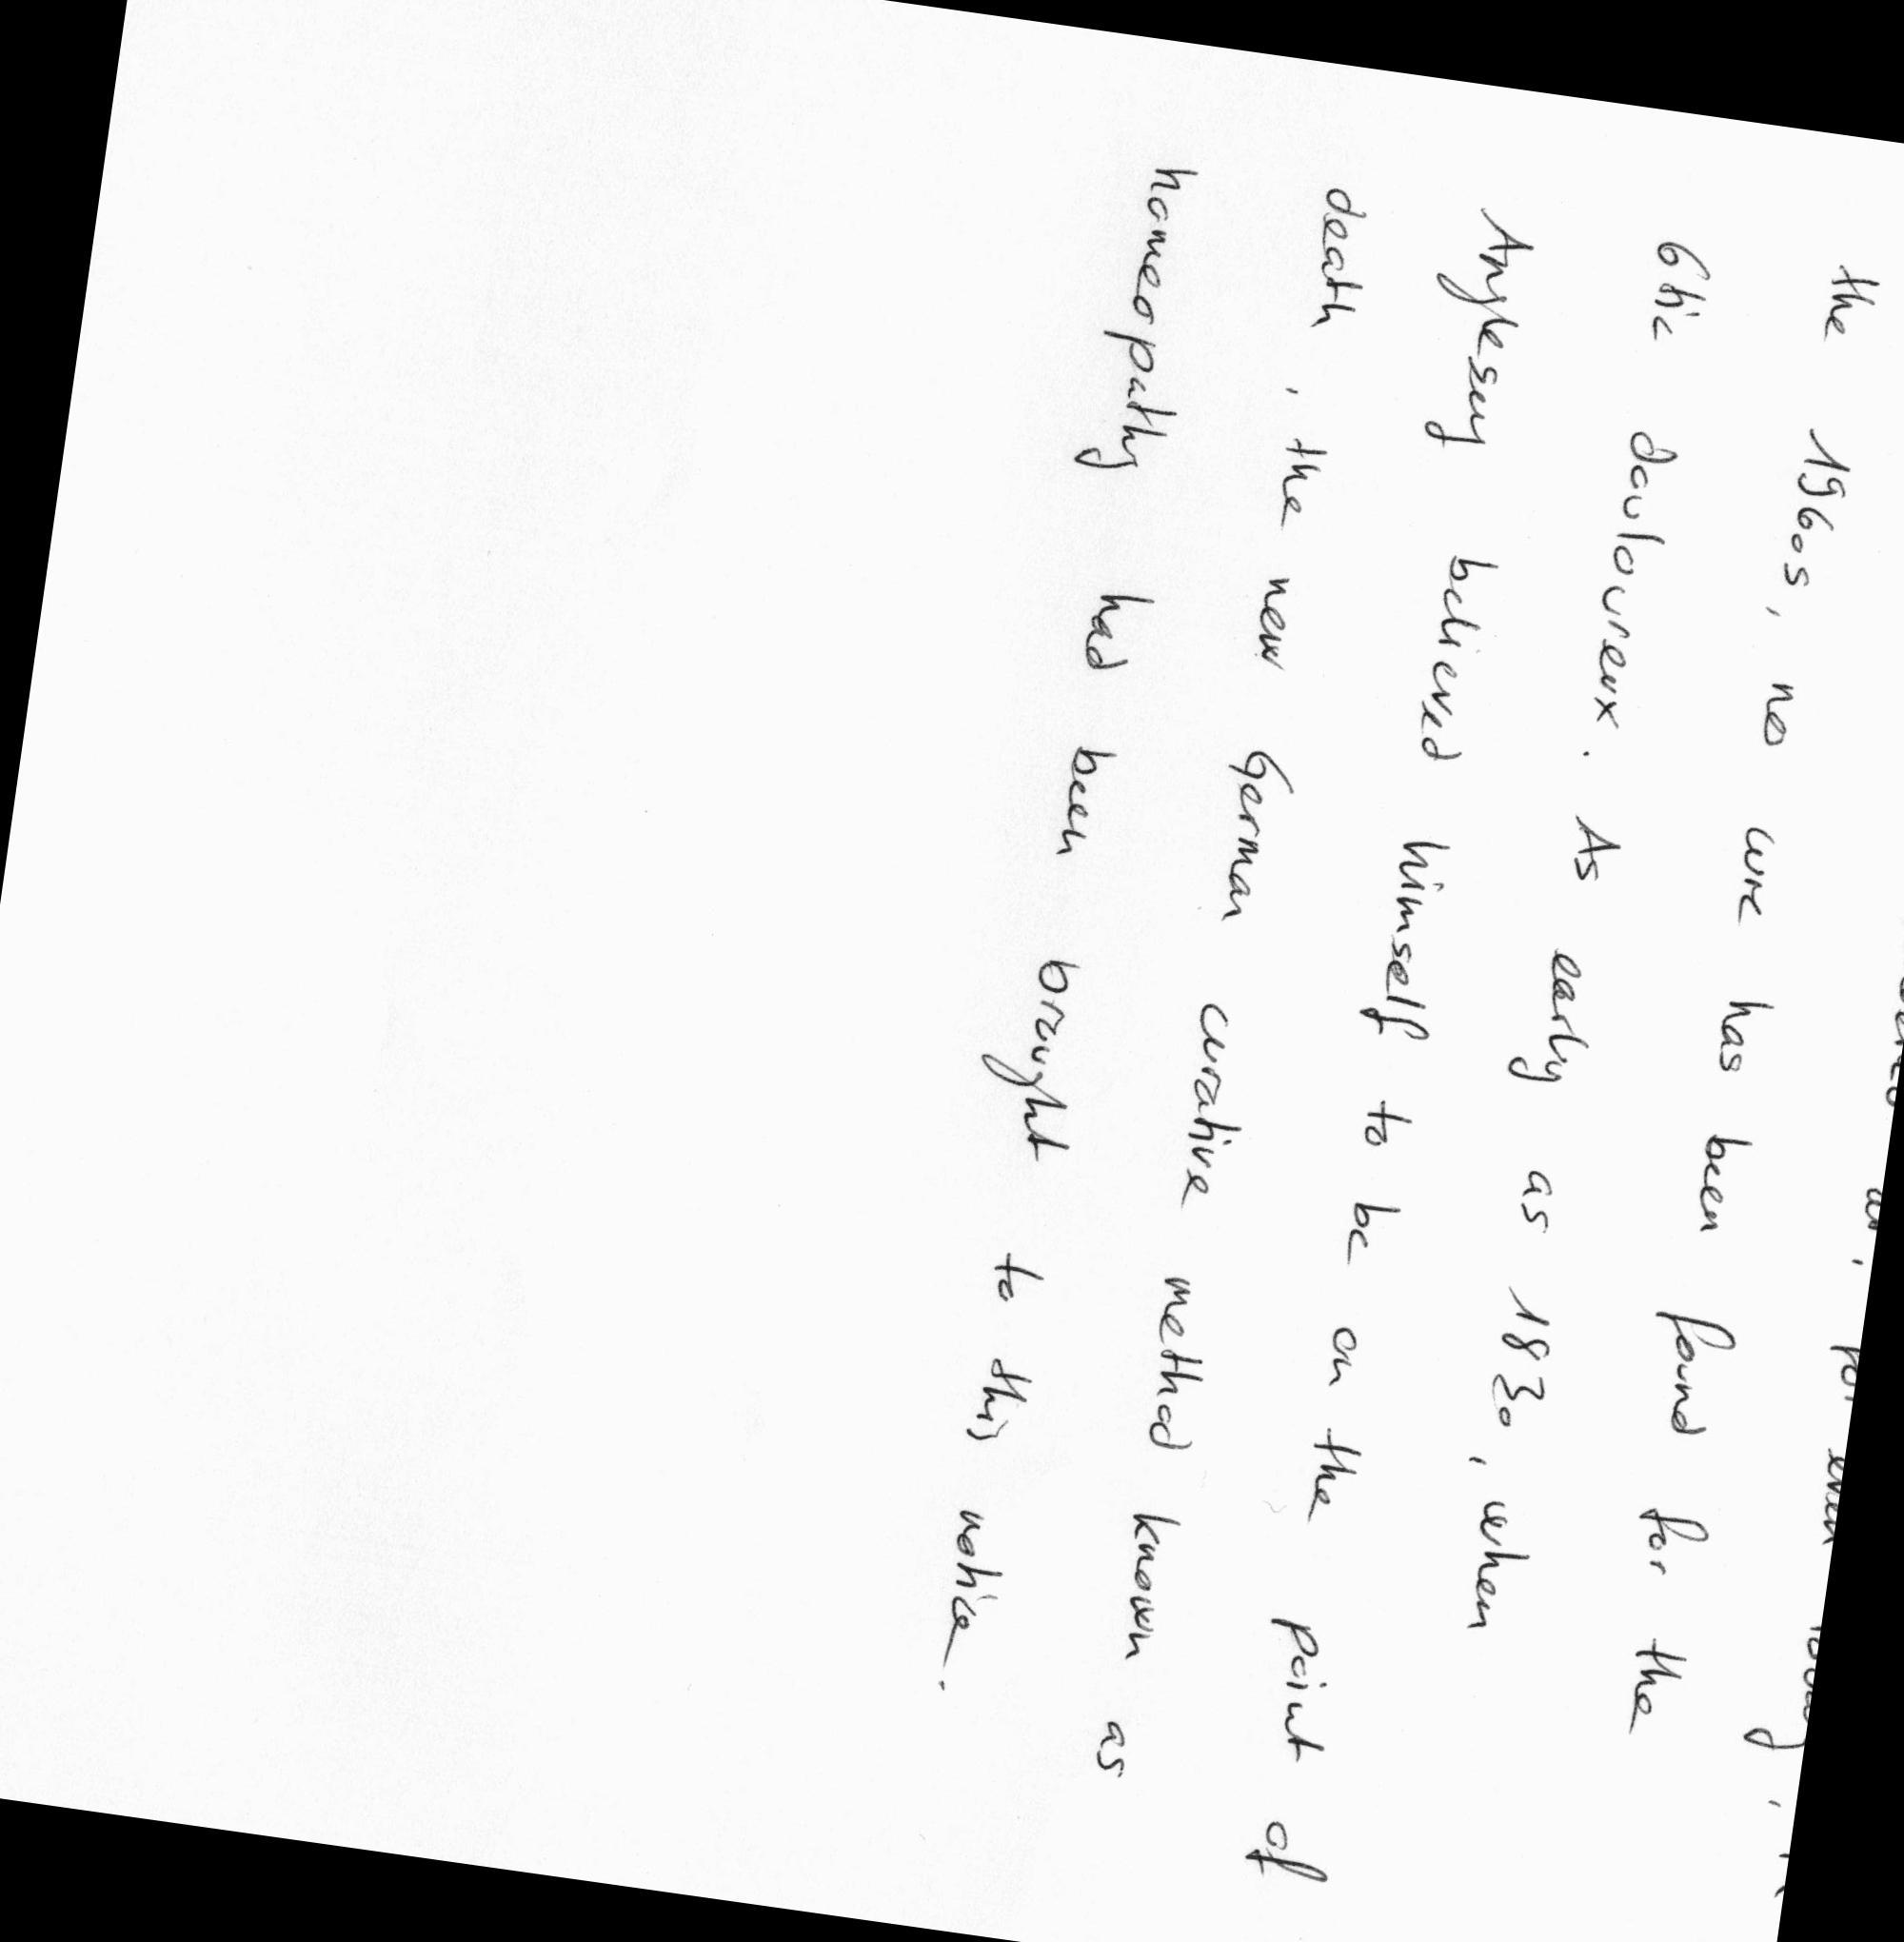 for even today,
the 1960s, no cure has been found for the
6tic douloureux. As early as 1830, when
Anglesey believed himself to be on the point of
death, the new German curative method known as
homeopathy had been brought to this notice.